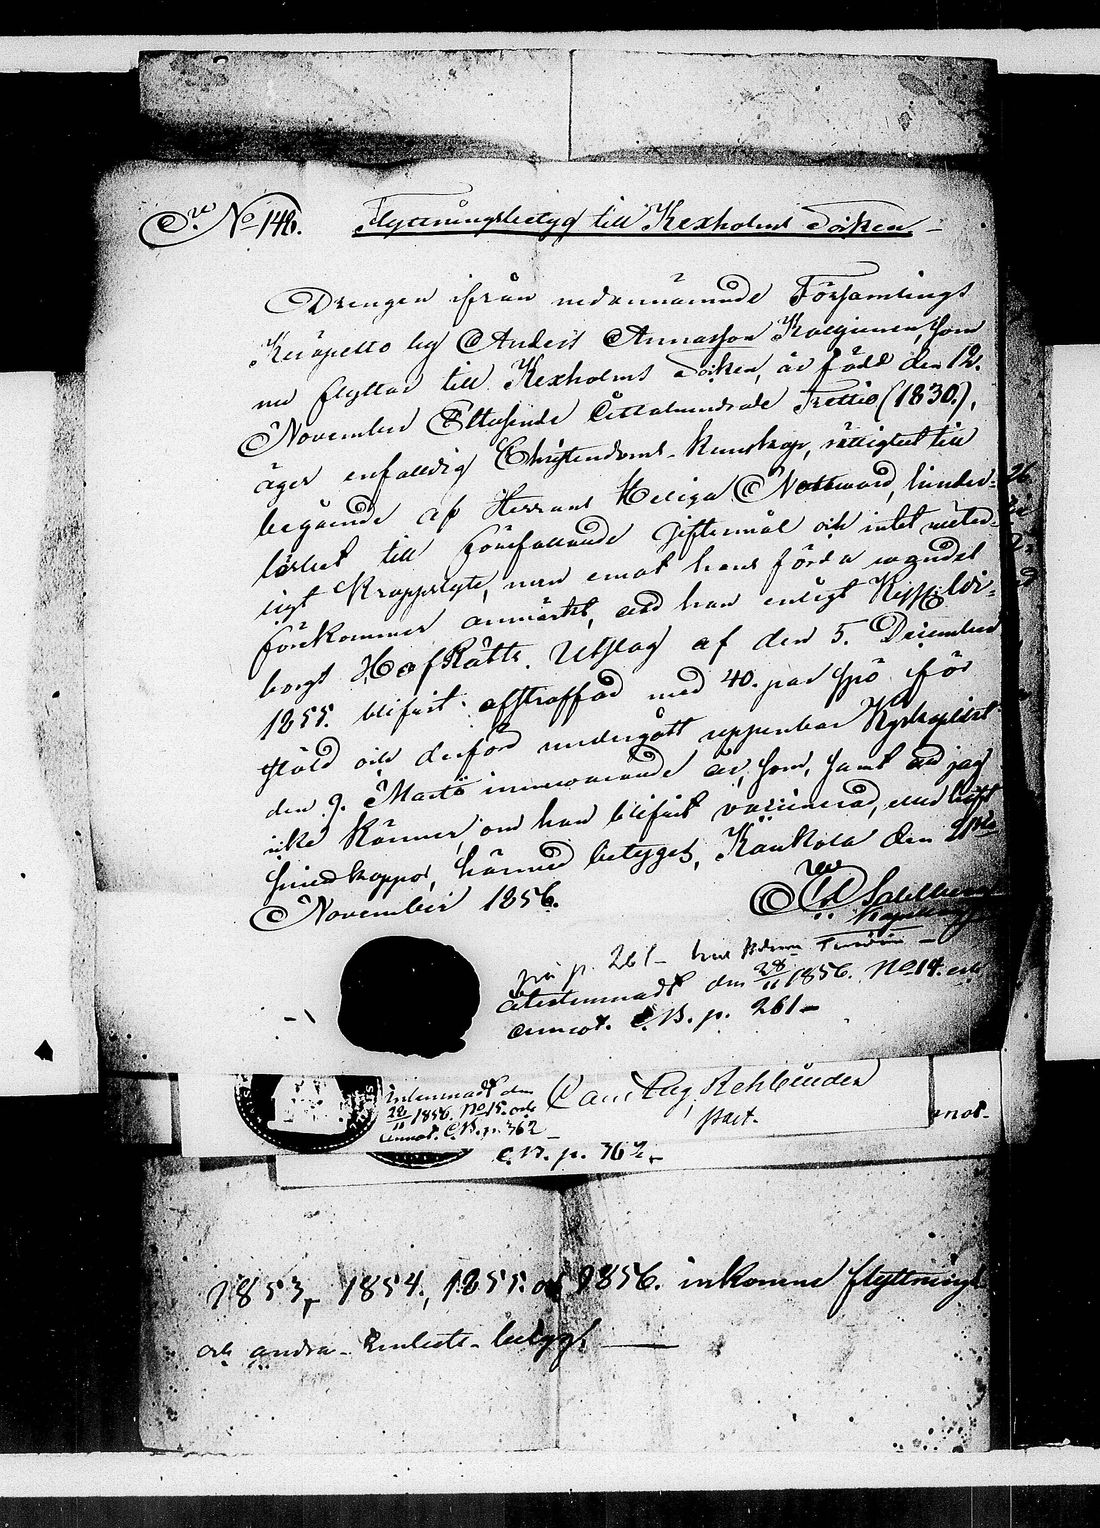 No 146. Flyttningsbetyg till Kexholms Socken
Drengen ifrån nedannämnde Församlings
by Anders Annasson som
nu flyttar till Kexholms Socken, är född den 12.
November Ettusende Ottahundrade Trettio (1830.),
äger enfaldig Christendoms-kunskap, rättighet till
begående af Herrans Heliga Nattward, hinder-
löshet till förefallande giftermål och intet
Kroppslyte, men emot hans förda wandel
förekommer anmärkt, att han enligt
borgs HofRätts Utslag af den 5. December
1855. blifwit afstraffad med 40. par spö för
stöld och derför undergått uppenbar Kyrkoplikt
den 9. Martii innewarande år, som, samt att jag
icke känner, om han blifwit vaccinerad, eller haft
smittkoppor, härmed betyges, Kaukola den
November 1856.
på p. 261
Inlemnadt den 28/11 1856. No 14. och
annot. C.B. p. 261
Inlemnadt den
28/11 1856. No 15. och
annot. C.B. p. 362
Rehbinder
past.
annot.
C.B. p. 362
1853, 1854, 1855. och 1856. inkomne flyttnings
och andra betyg